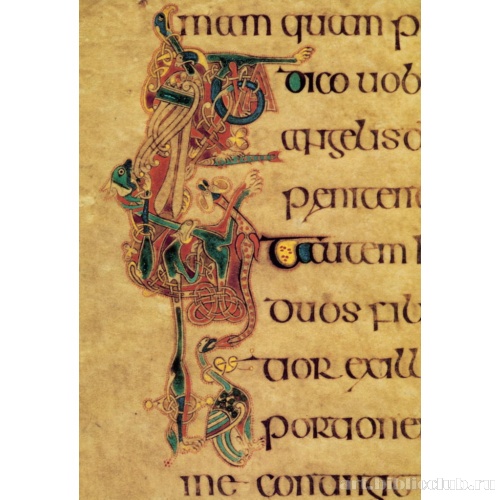 mam quam p
dico uob
angelis d
peniten
autem h
duos fili
tior ex ill
portione
me contingit
art.biblioclub.ru